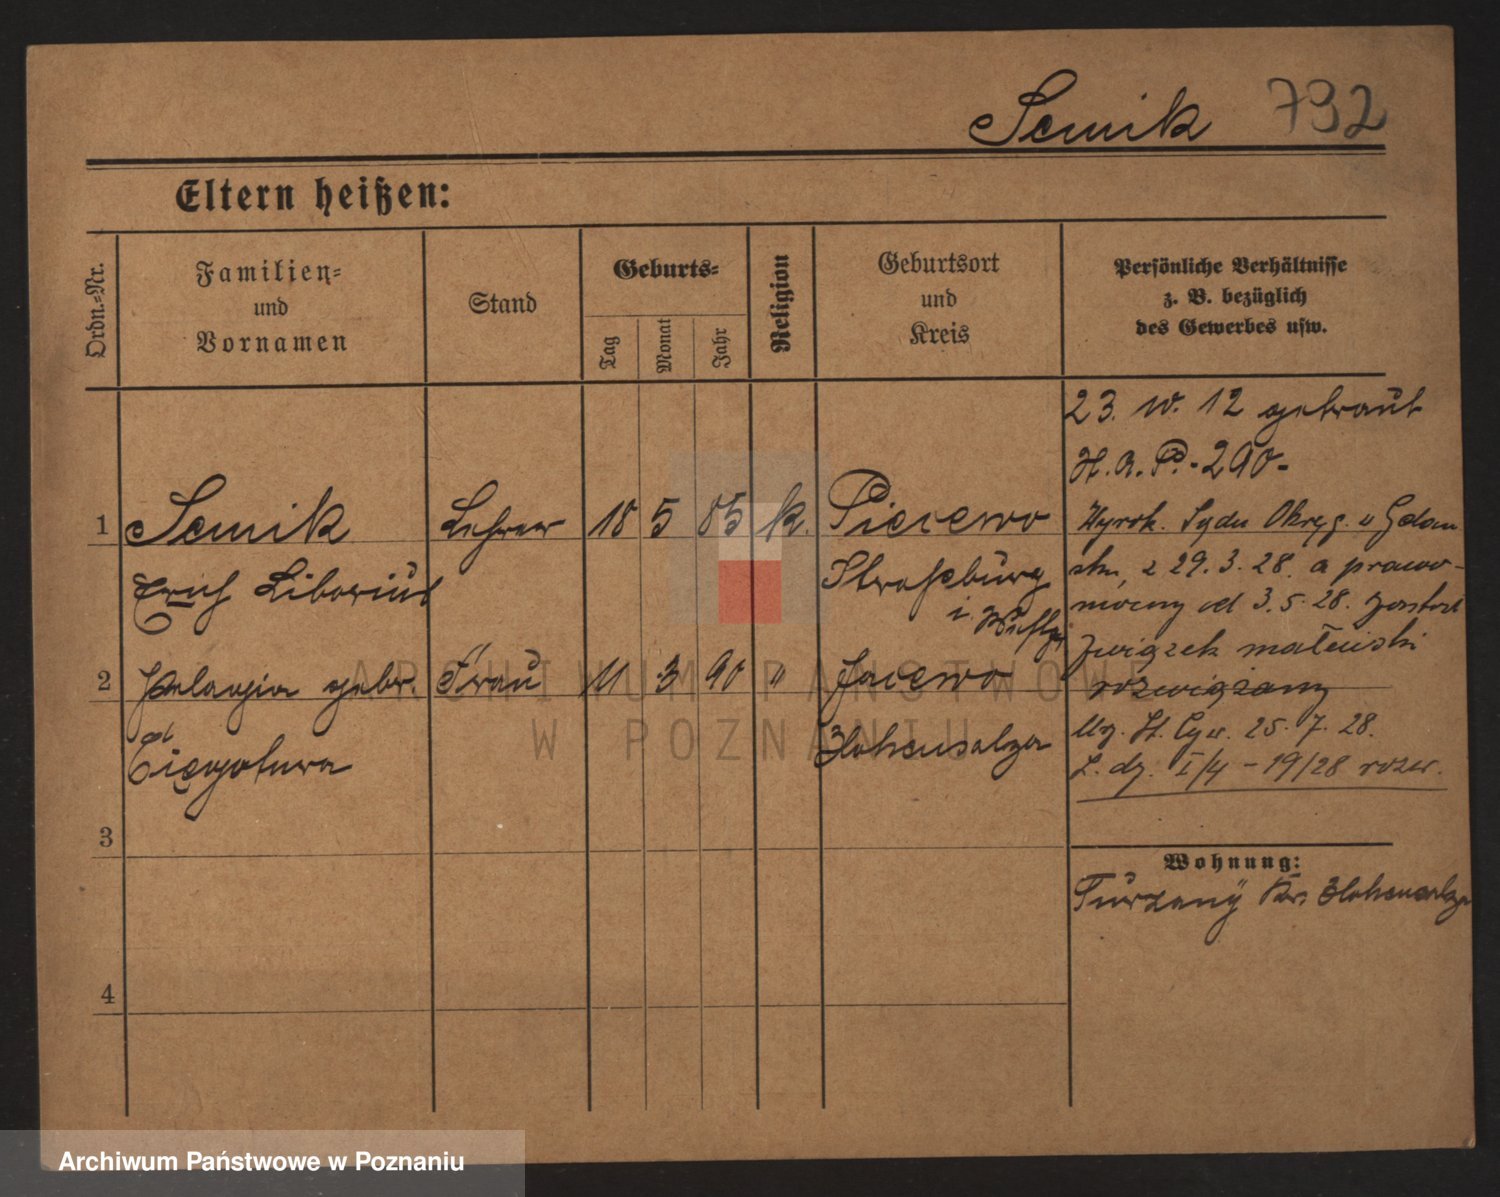 Semik 792
Eltern heißen:
Ordn.-Nr.
Familien-
und
Vornamen
Stand
Geburts-
Tag
Monat
Jahr
Religion
Geburtsort
und
Kreis
Persönliche Verhältnisse
z. B. bezüglich
des Gewerbes usw.
23. IV. 12 getraut
H. A. P. - 290 -
1 Semik Lehrer 18 5 85 k. Piecewo
Erich Liborius Straßburg
i. Westpr
2 Pelagia gebr. Frau 11 3 90 " Jacewo
Cięgotura Hohensalza
Wyrok. Sądu Okręg. w Gdań
sku, z 29. 3. 28. a prawo-
mocny od 3. 5. 28. został
związek małżeński
rozwiązany
Urz. St. Cyw. 25. 7. 28.
L. dz. I/4 - 19/28 rozw.
3
Wohnung:
Turzany Kr. Hohensalza
4
ARCHIWUM PAŃSTWOWE
W POZNANIU
Archiwum Państwowe w Poznaniu